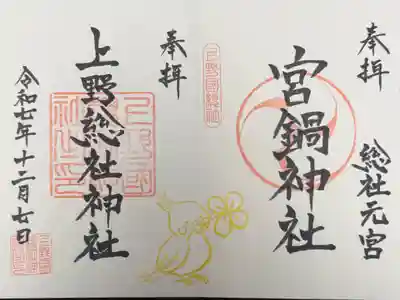 奉拝
総社元宮
宮鍋神社
上野國総社
奉拝
上野総社神社
令和七年十二月七日